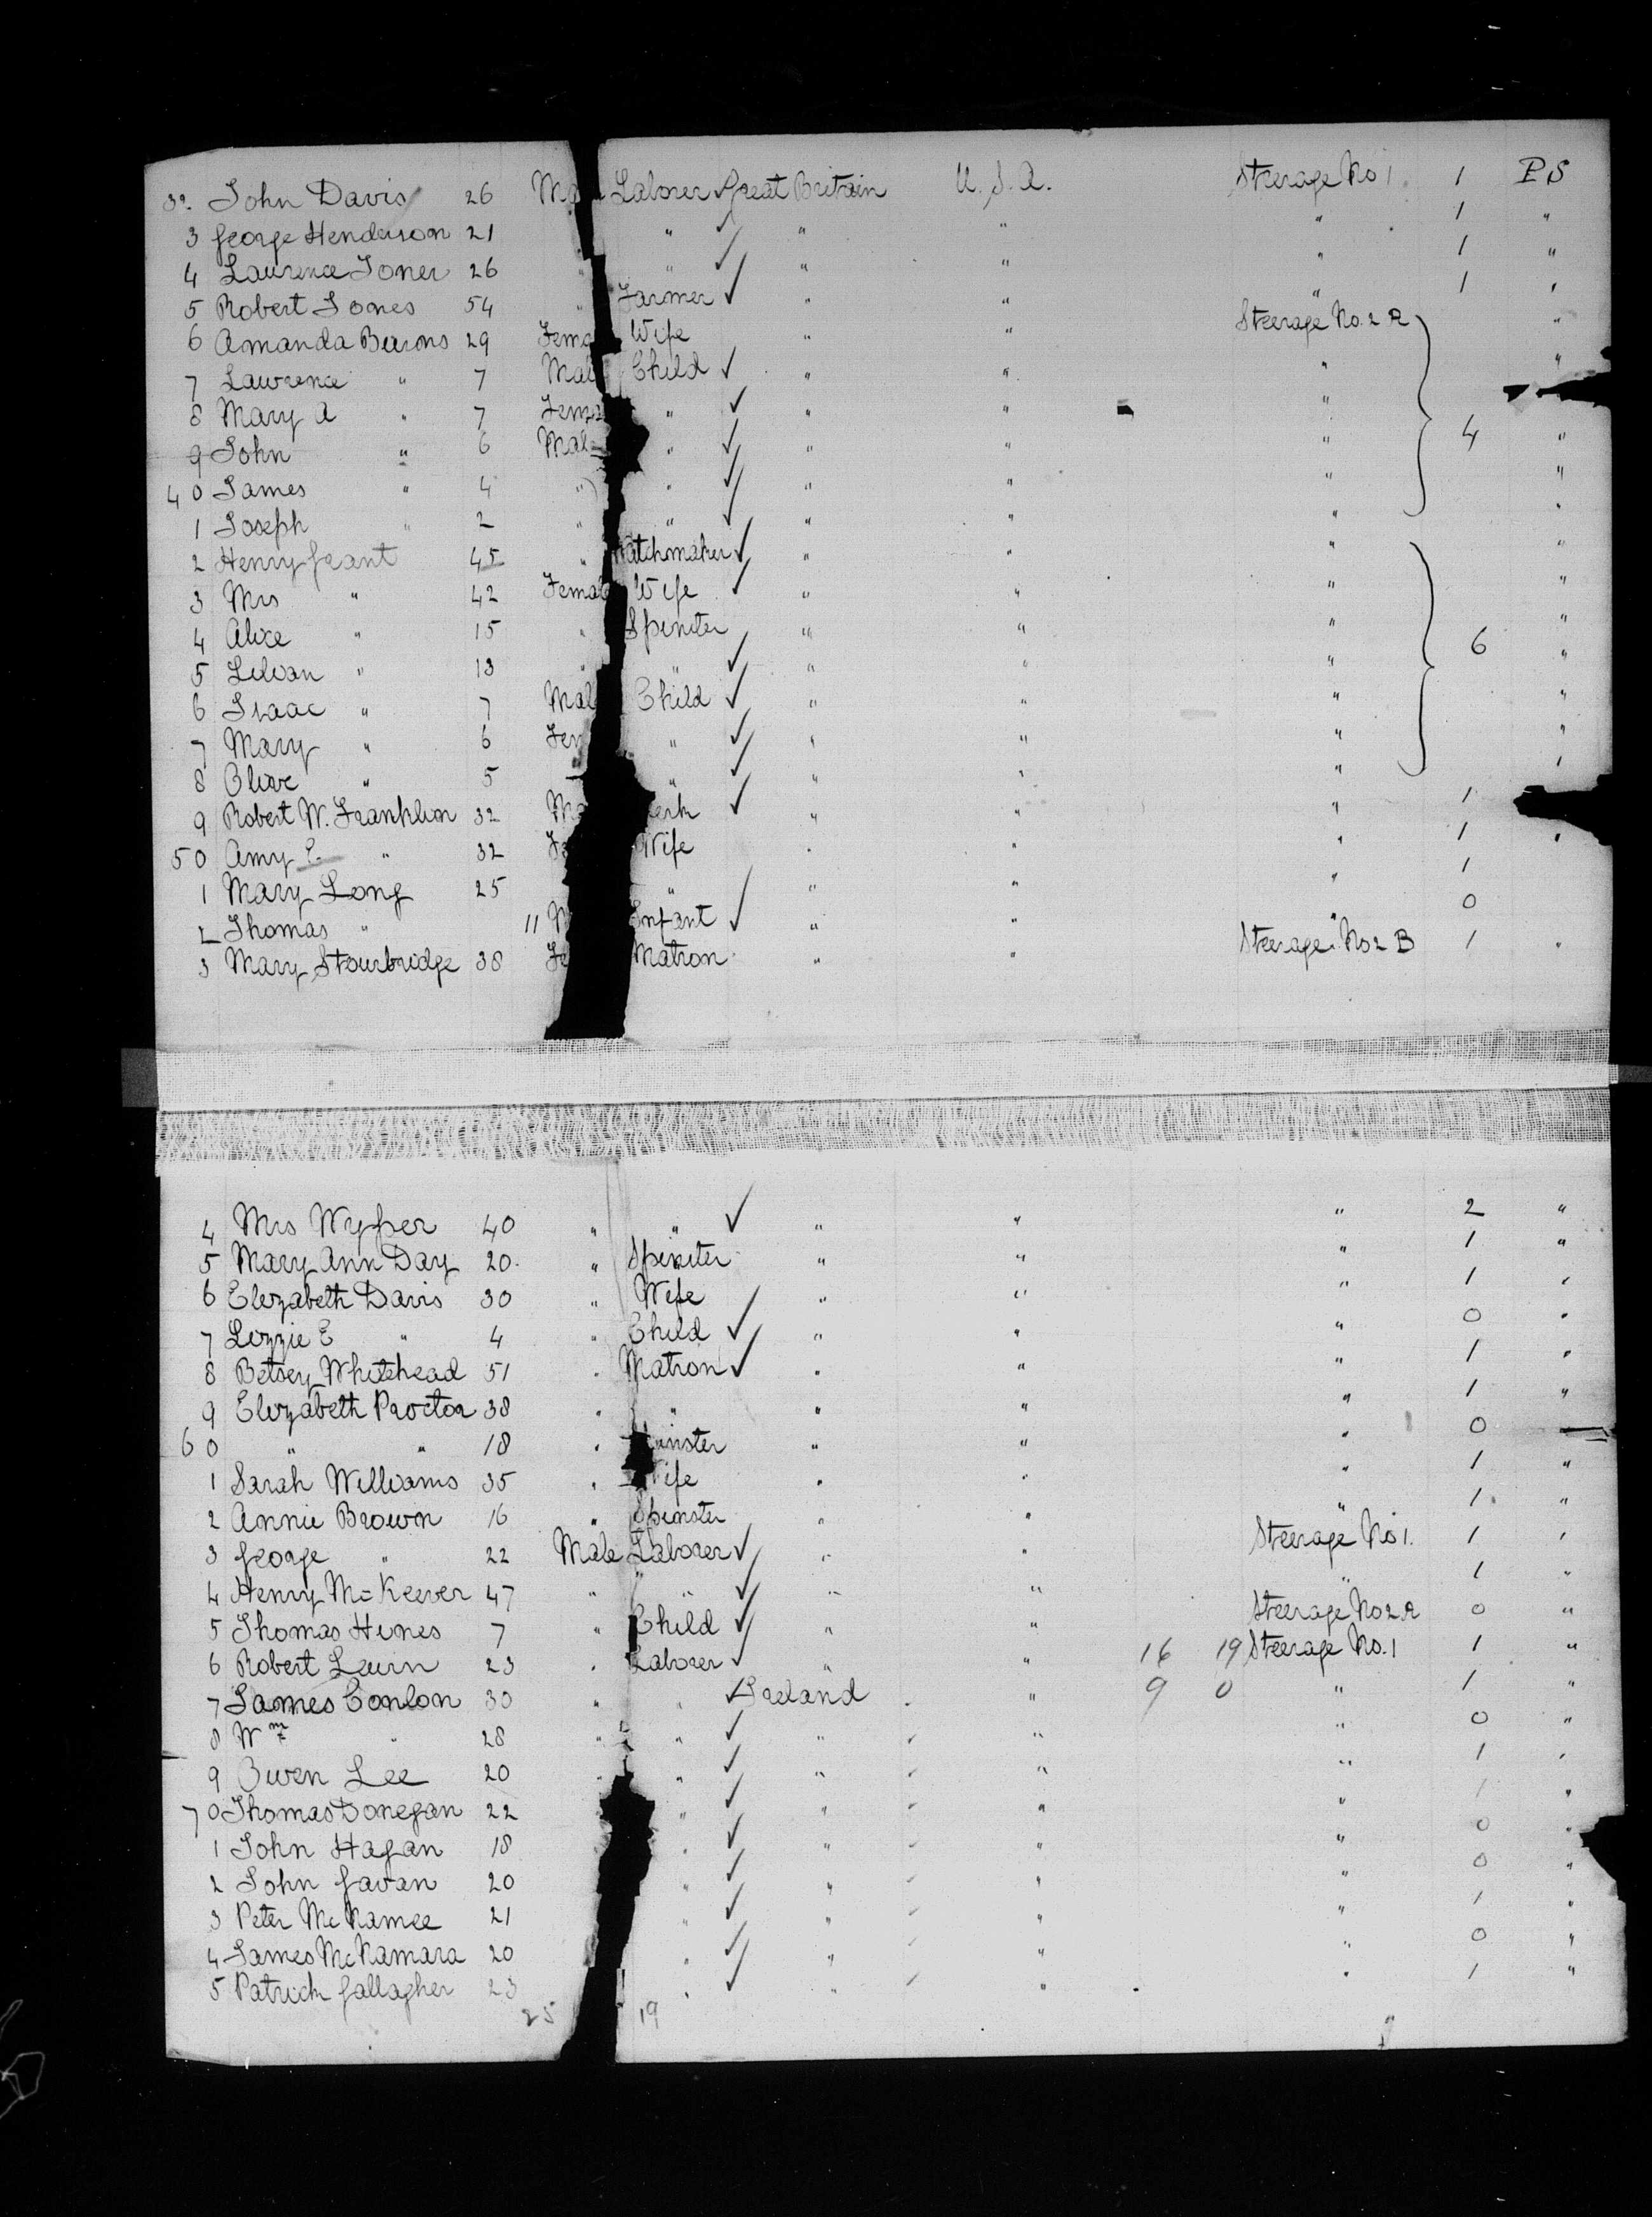 32 John Davis 26 Male Laborer Great Britain U.S.A. Steerage No 1 1 PS
3 George Henderson 21 " " " " 1 "
4 Laurence Toner 26 " " " " " " 1 "
5 Robert Jones 54 " Farmer " " " 1 "
6 Amanda Burns 29 Fema Wife " " Steerage No. 2 A "
7 Lawrence " 7 Mal Child " " " "
8 Mary A " 7 Fema " " " "
9 John " 6 Mal " " " " 4 "
40 James " 4 " " " " " "
1 Joseph " 2 " " " " " "
2 Henry Grant 45 " Watchmaker " " "
3 Mrs " 42 Female Wife " " " "
4 Alice " 15 " Spinster " " " "
5 Lilvan " 13 " " " " " 6 "
6 Isaac " 7 Mal Child " " " "
7 Mary " 6 Fem " " " " "
8 Olive " 5 " " " " "
9 Robert W. Franklin 32 Ma erk " " " 1
50 Amy E. " 32 Fe Wife " " " 1 "
1 Mary Long 25 " " " " 1
2 Thomas " 11 M Infant " " " 0
3 Mary Stourbridge 38 Fe Matron " " Steerage No 2 B 1 "
4 Mrs Wyper 40 " " " " " 2 "
5 Mary Ann Day 20 " Spinster " " " 1 "
6 Elizabeth Davis 30 " Wife " " " 1 "
7 Lizzie E " 4 " Child " " " 0 "
8 Betsey Whitehead 51 " Matron " " " 1 "
9 Elizabeth Proctor 38 " " " " " 1 "
60 " " 18 " inster " " " 0
1 Sarah Williams 35 " Wife " " " 1 "
2 Annie Brown 16 " Spinster " " " 1 "
3 George " 22 Male Laborer " " Steerage No 1. 1 "
4 Henry McKeever 47 " " " " " 1 "
5 Thomas Hines 7 " Child " " Steerage No 2 A 0 "
6 Robert Leurn 23 " Laborer " " 16 19 Steerage No. 1 1 "
7 James Conlon 30 " " Ireland " 9 0 " 1 "
8 Wm " 28 " " " " " 0 "
9 Owen Lee 20 " " " " " 1 "
70 Thomas Donegan 22 " " " " 1 "
1 John Hagan 18 " " " " 0 "
2 John Gavan 20 " " " " 0 "
3 Peter McNamee 21 " " " " 1 "
4 James McNamara 20 " " " " 0 "
5 Patrick Gallagher 23 " " " " 1 "
25 19